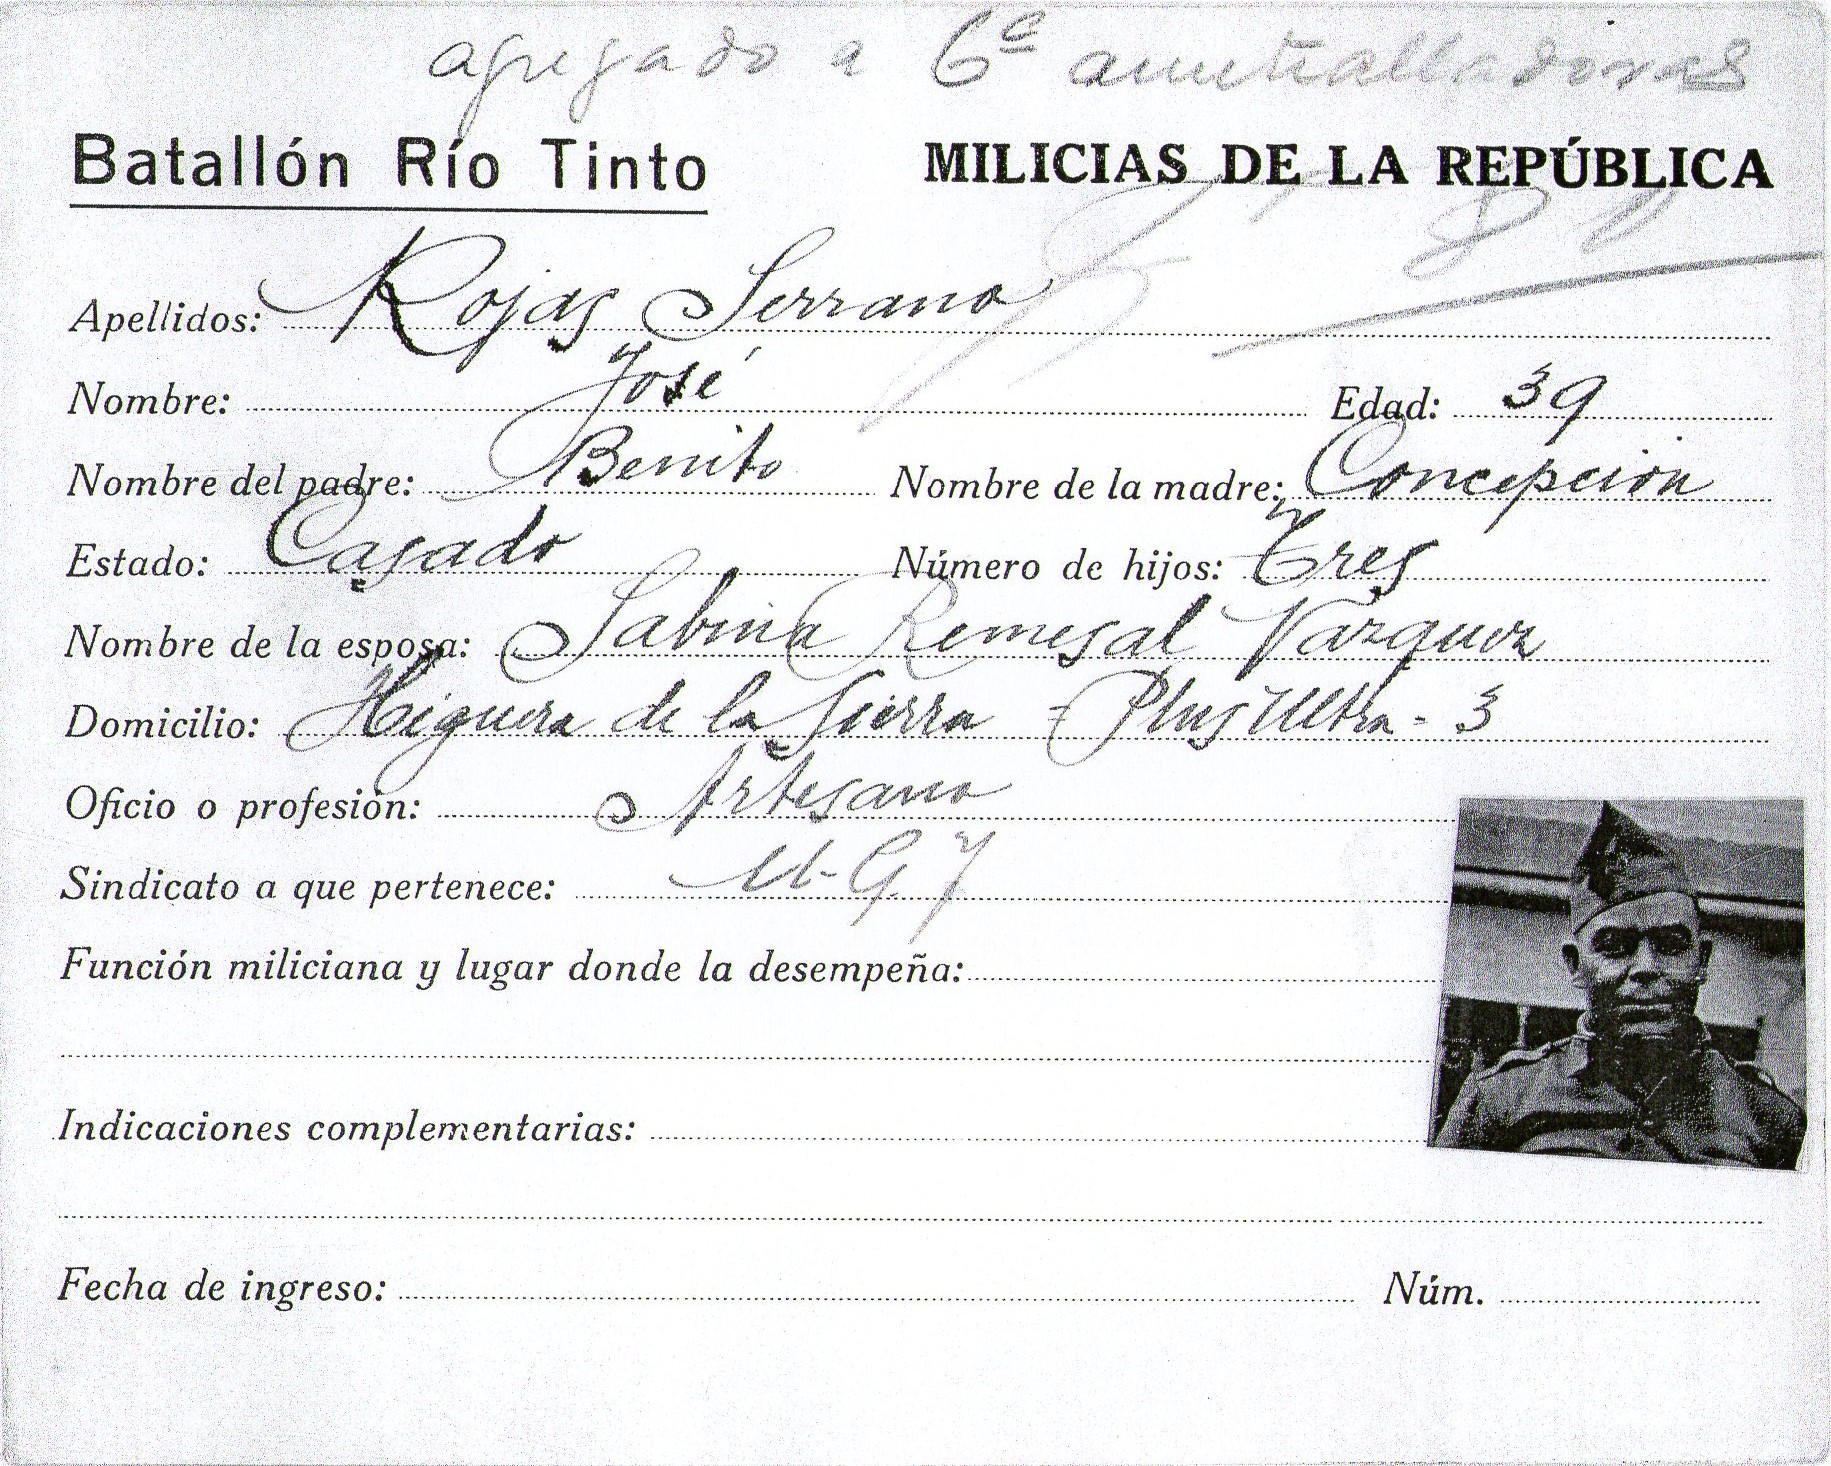 agregado a 6ª ametralladoras
Batallón Río Tinto MILICIAS DE LA REPÚBLICA
Apellidos: Rojas Serrano
Nombre: José Edad: 39
Nombre del padre: Benito Nombre de la madre: Concepción
Estado: Casado Número de hijos: Tres
Nombre de la esposa: Sabina Remesal Vazquez
Domicilio: Higuera de la Sierra - Plus Ultra - 3
Oficio o profesión: Artesano
Sindicato a que pertenece: U.G.T
Función miliciana y lugar donde la desempeña:
Indicaciones complementarias:
Fecha de ingreso: Núm.